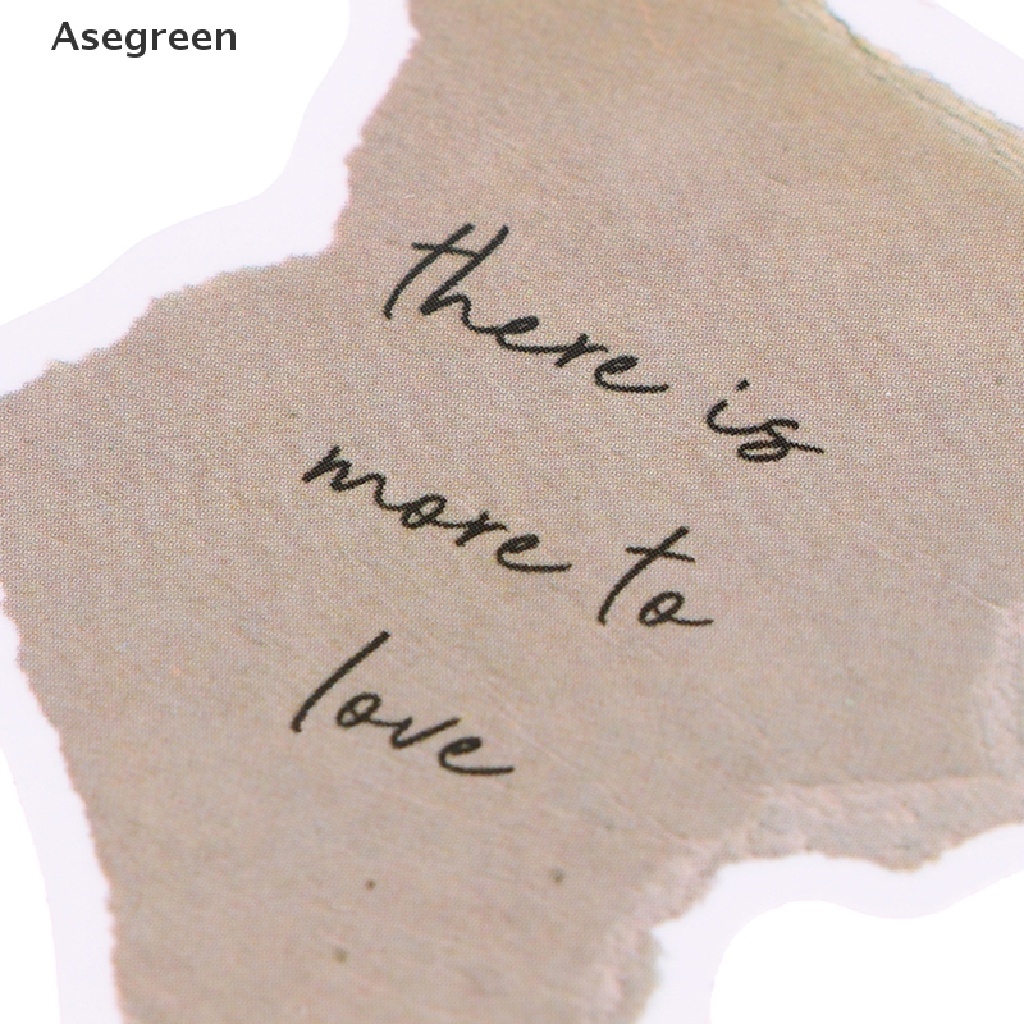 Asegreen
there is
more to
love